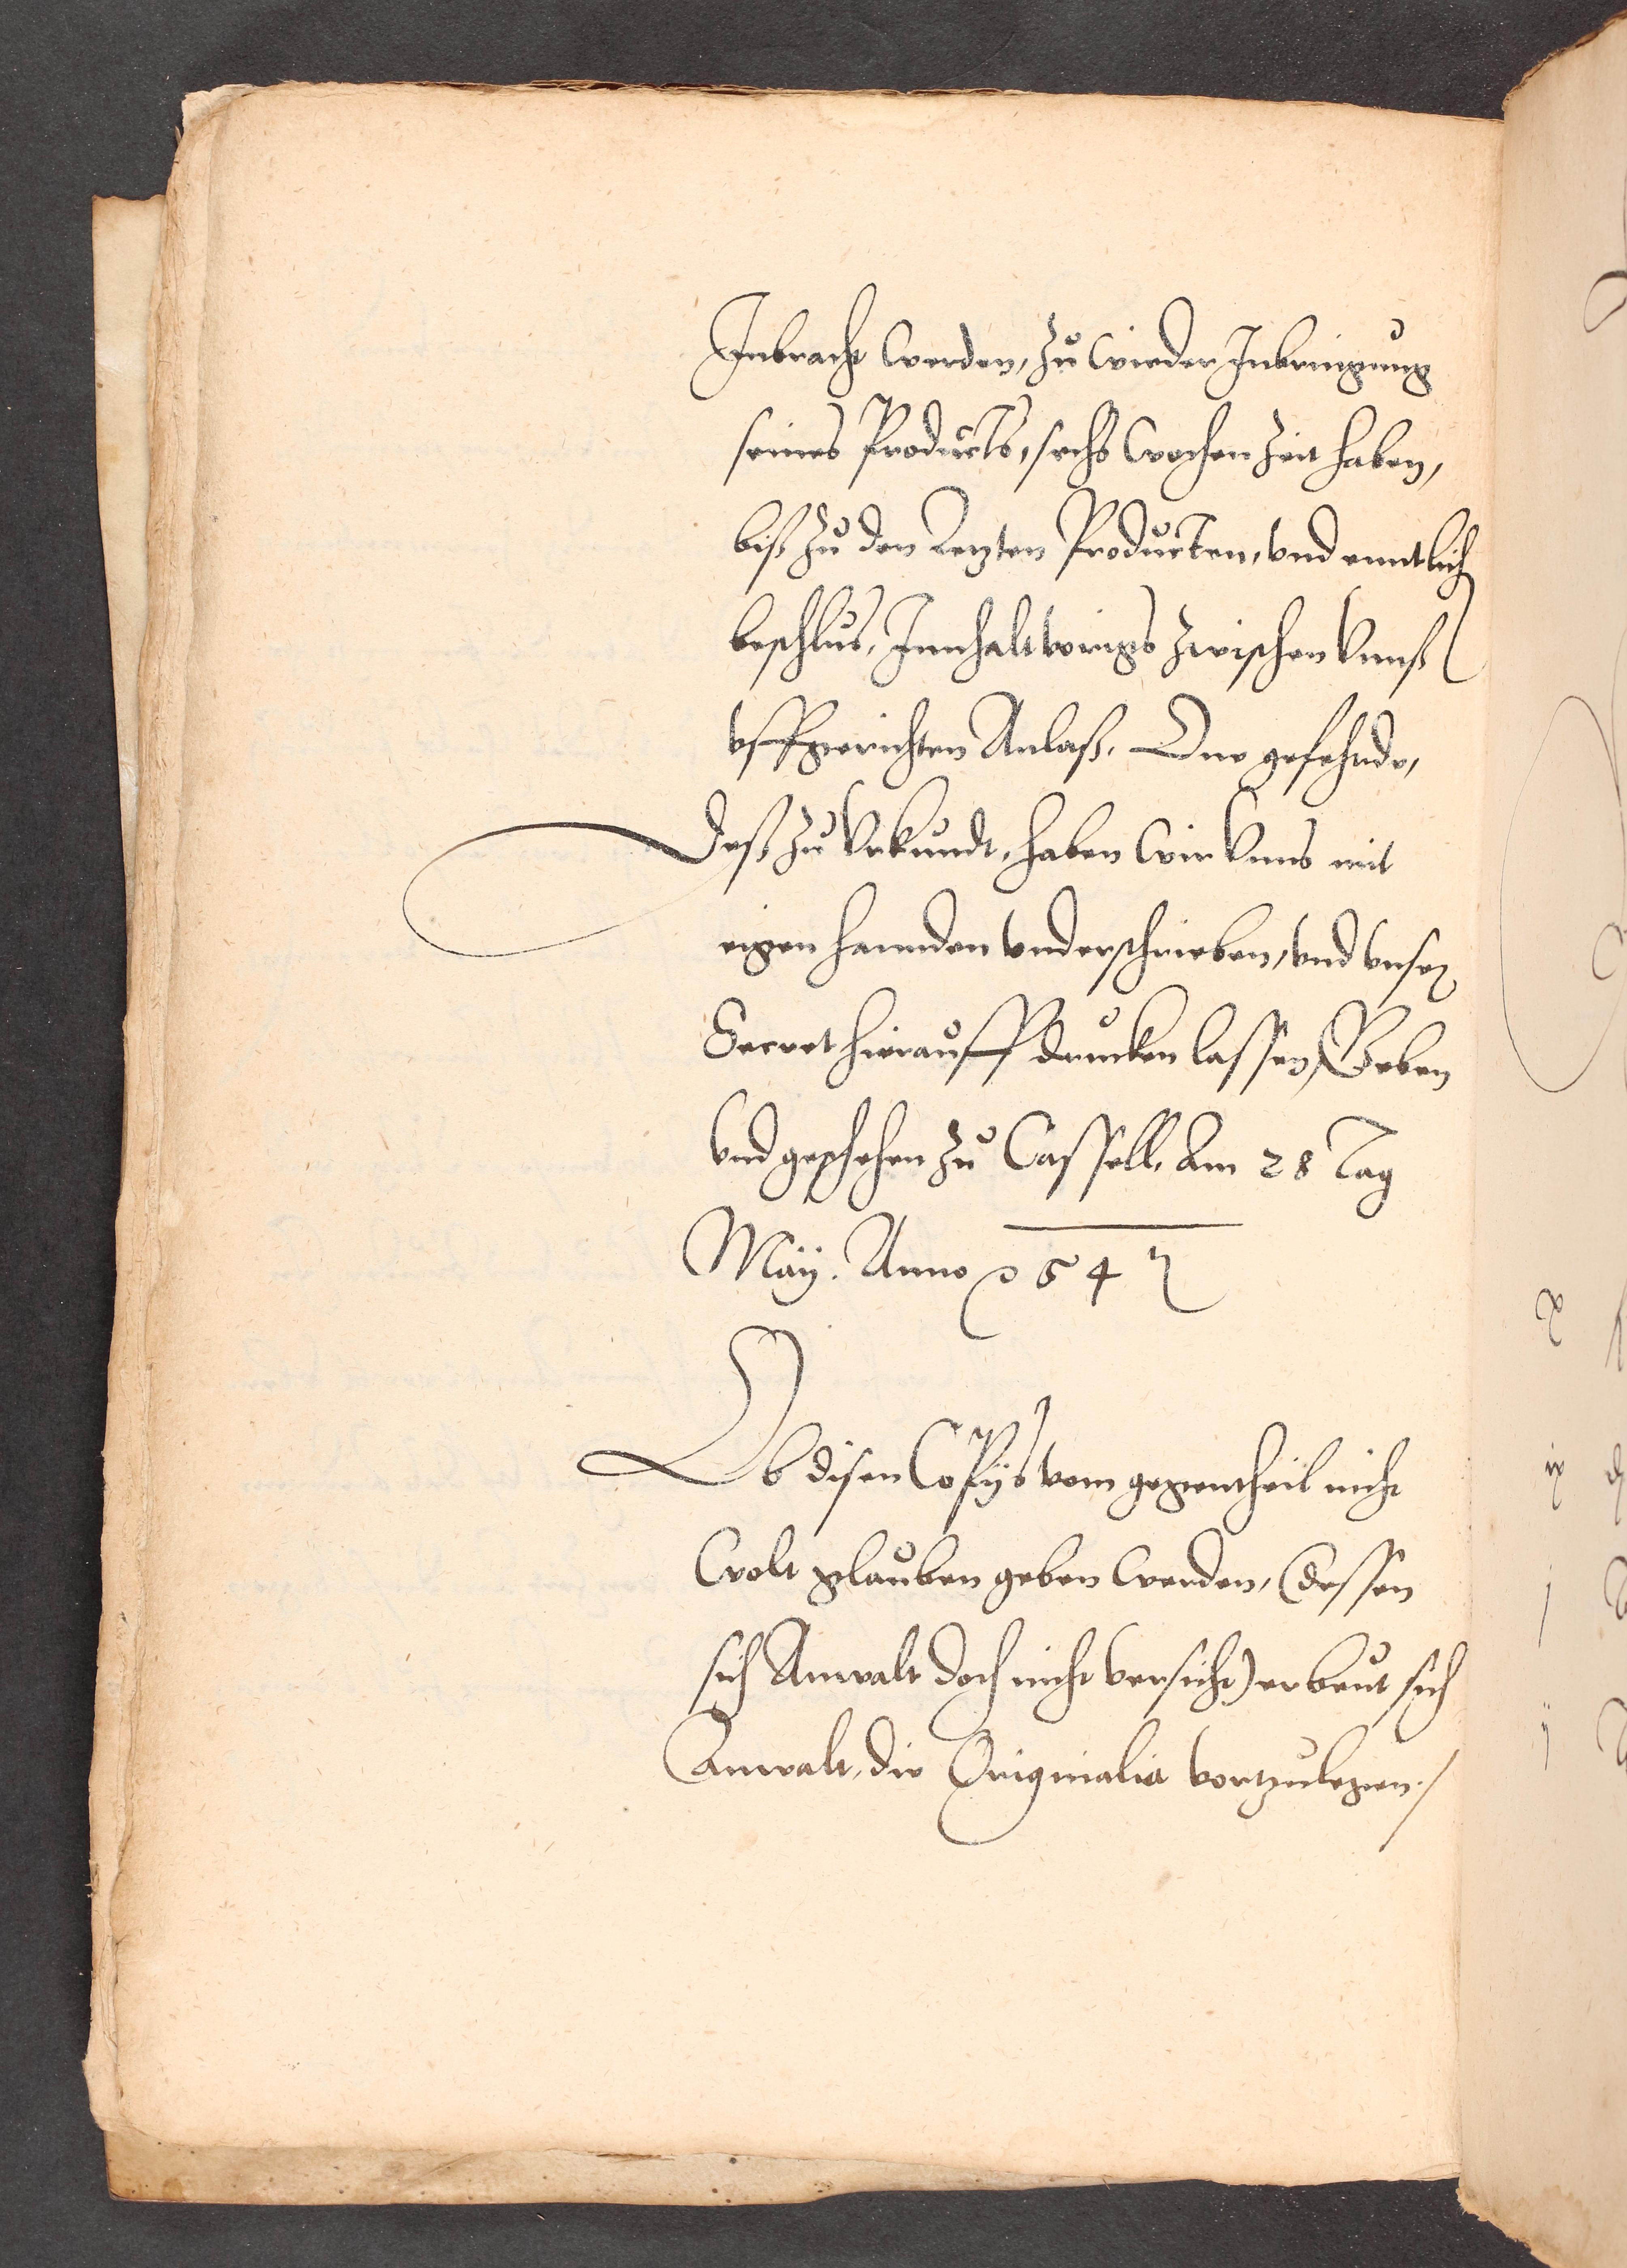 Inbracht werden, zu wieder Inbringung
seines Products, sechs wochen zeit haben,
biß zu den letzten Producten, vnd enntlich
beschlus, Innhalt vorigs zwischen Vnnß
vffgerichten Anlaß. One geferhde,
Deß zu Vrkundt, haben wir Vnns mit
eigen hannden vnderschrieben, vnd vnser
Secret hierauff drucken lassen, Geben
Vnd geschehen zu Cassell, Am 28 Tag
Maÿ. Anno 1547
Ob disen Copÿs vom gegentheil nicht
wolt glauben geben werden, (dessen
sich Anwalt doch nicht versicht) erbeut sich
Anwalt, die Originalia vortzulegen./